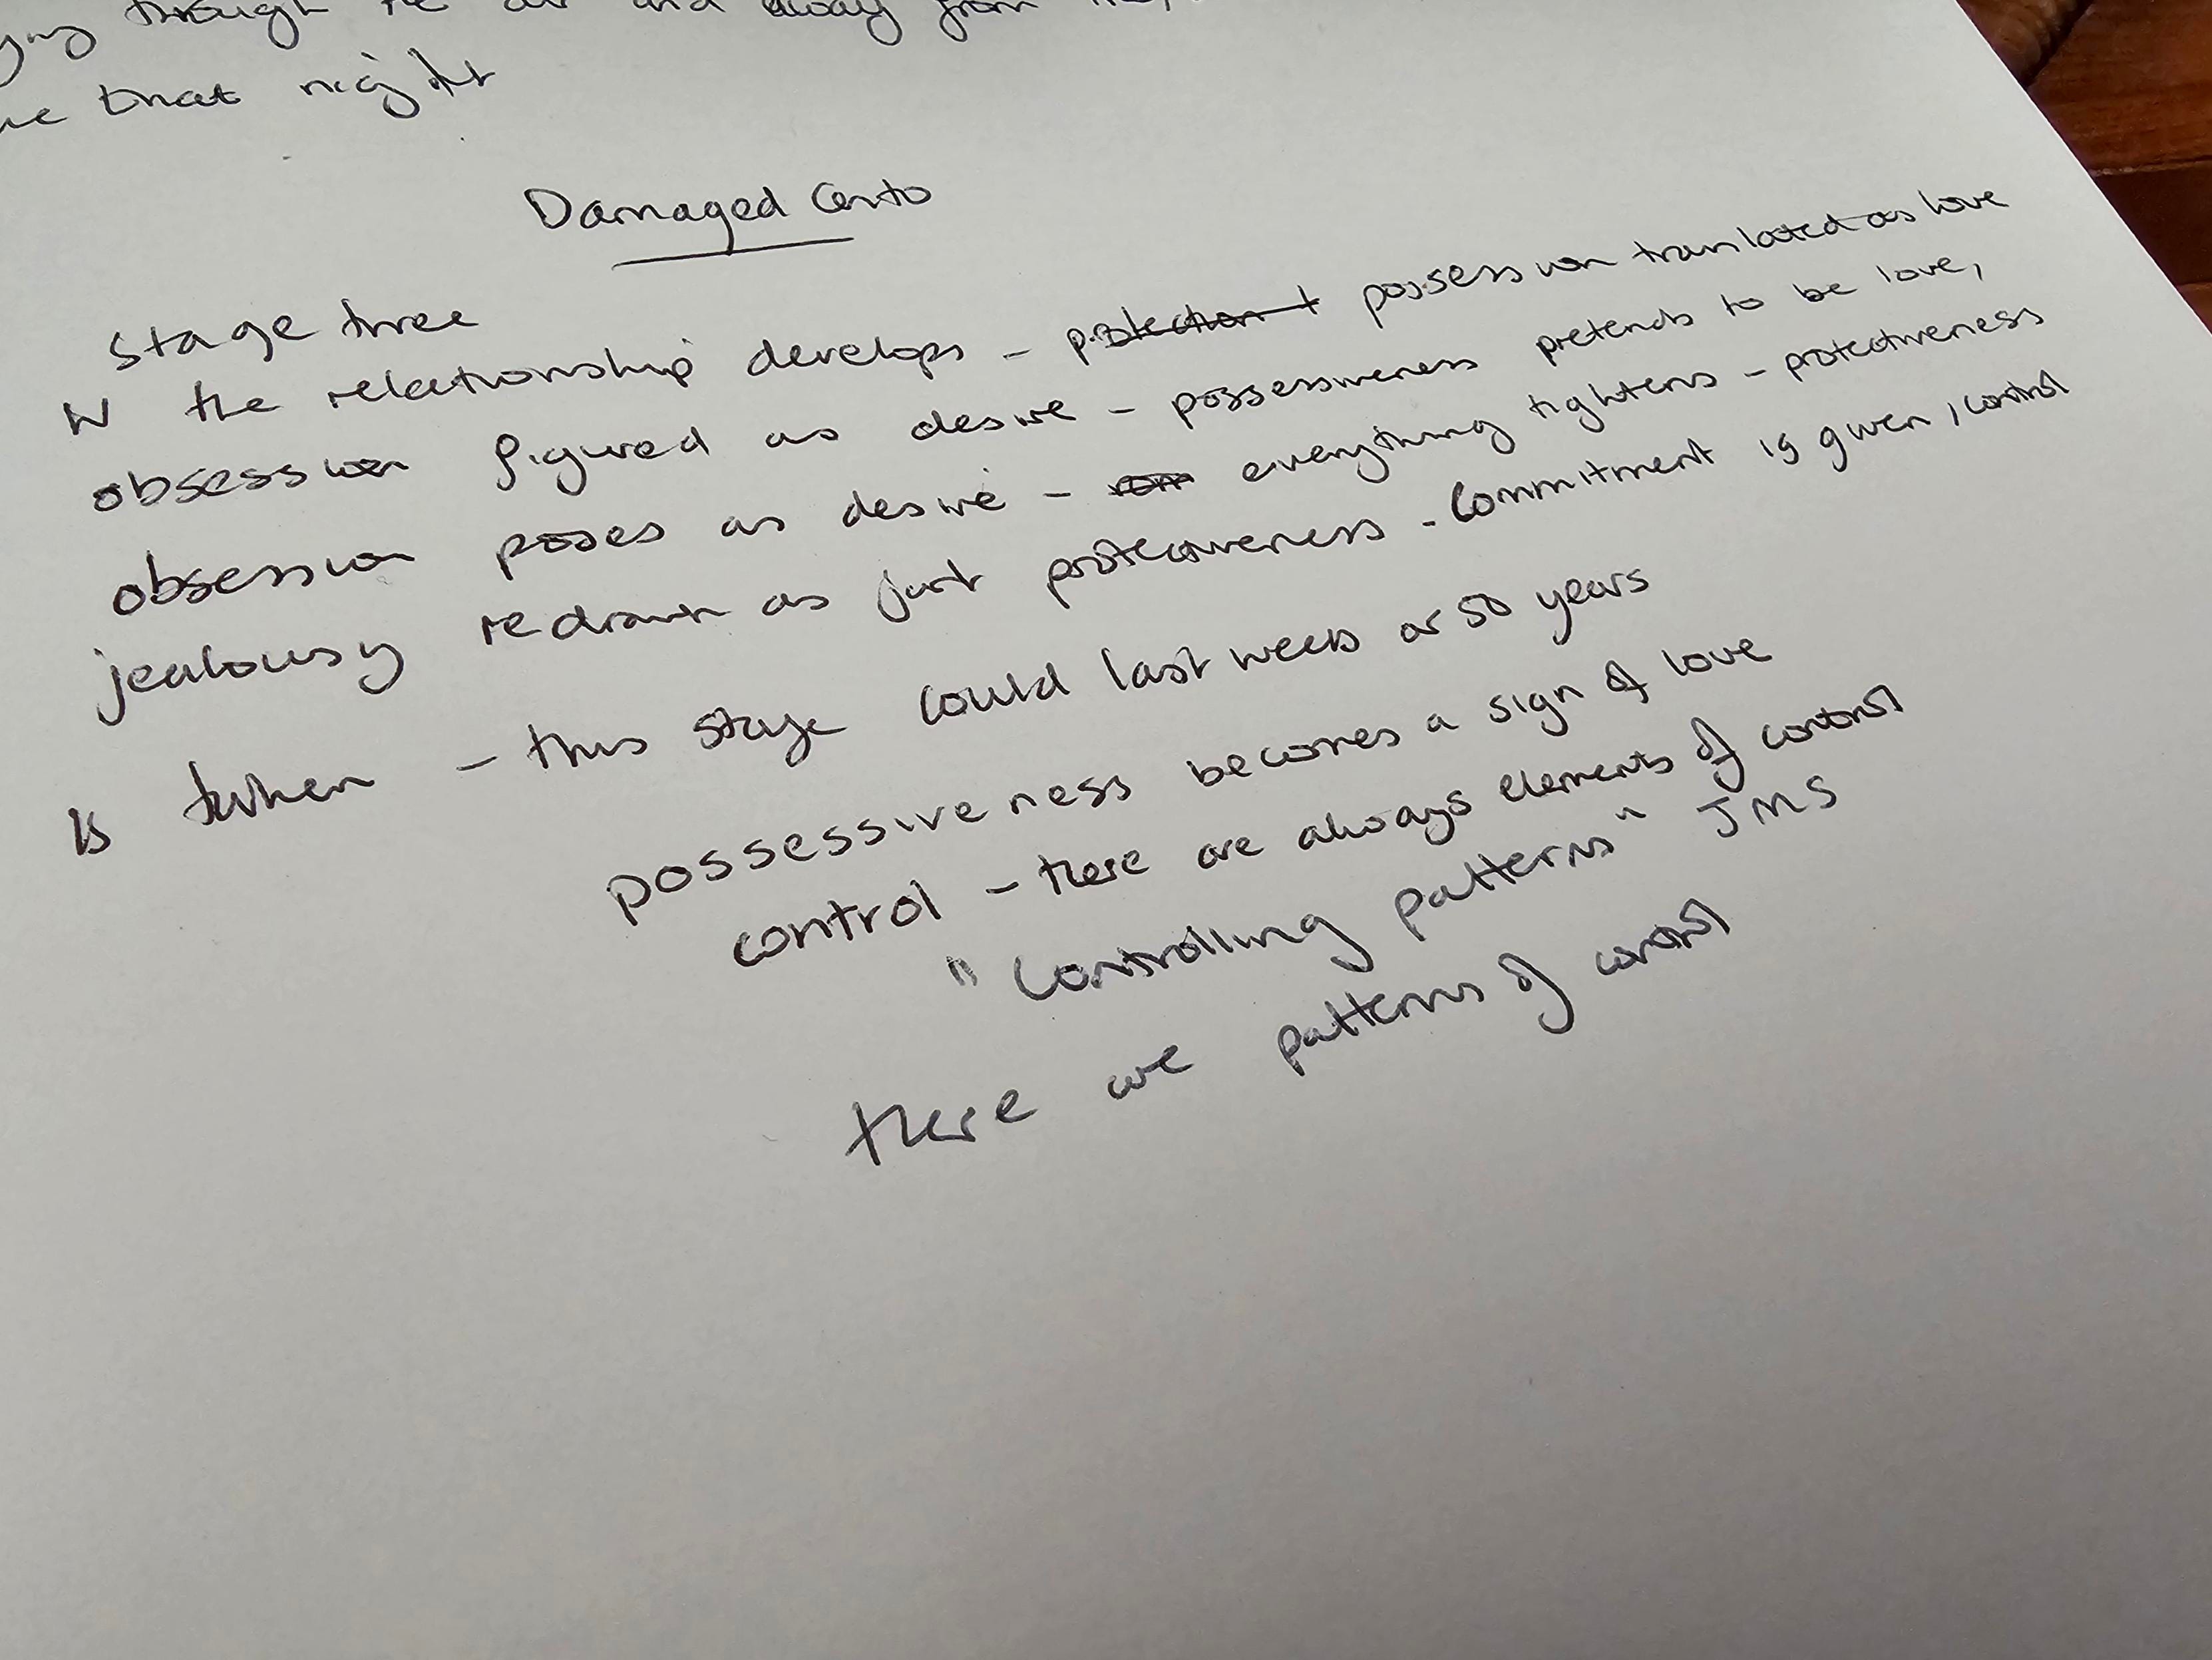 through the air and away from
that night
Damaged Cento
Stage three
the relationship develops - possession translated as love
obsession figured as desire - possessiveness pretends to be love,
obsession poses as desire - everything tightens - protectiveness
jealousy redrawn as just protectiveness - commitment is given, control
is taken - this stage could last weeks or 50 years
possessiveness becomes a sign of love
control - there are always elements of control
"controlling patterns" JMS
there are patterns of control